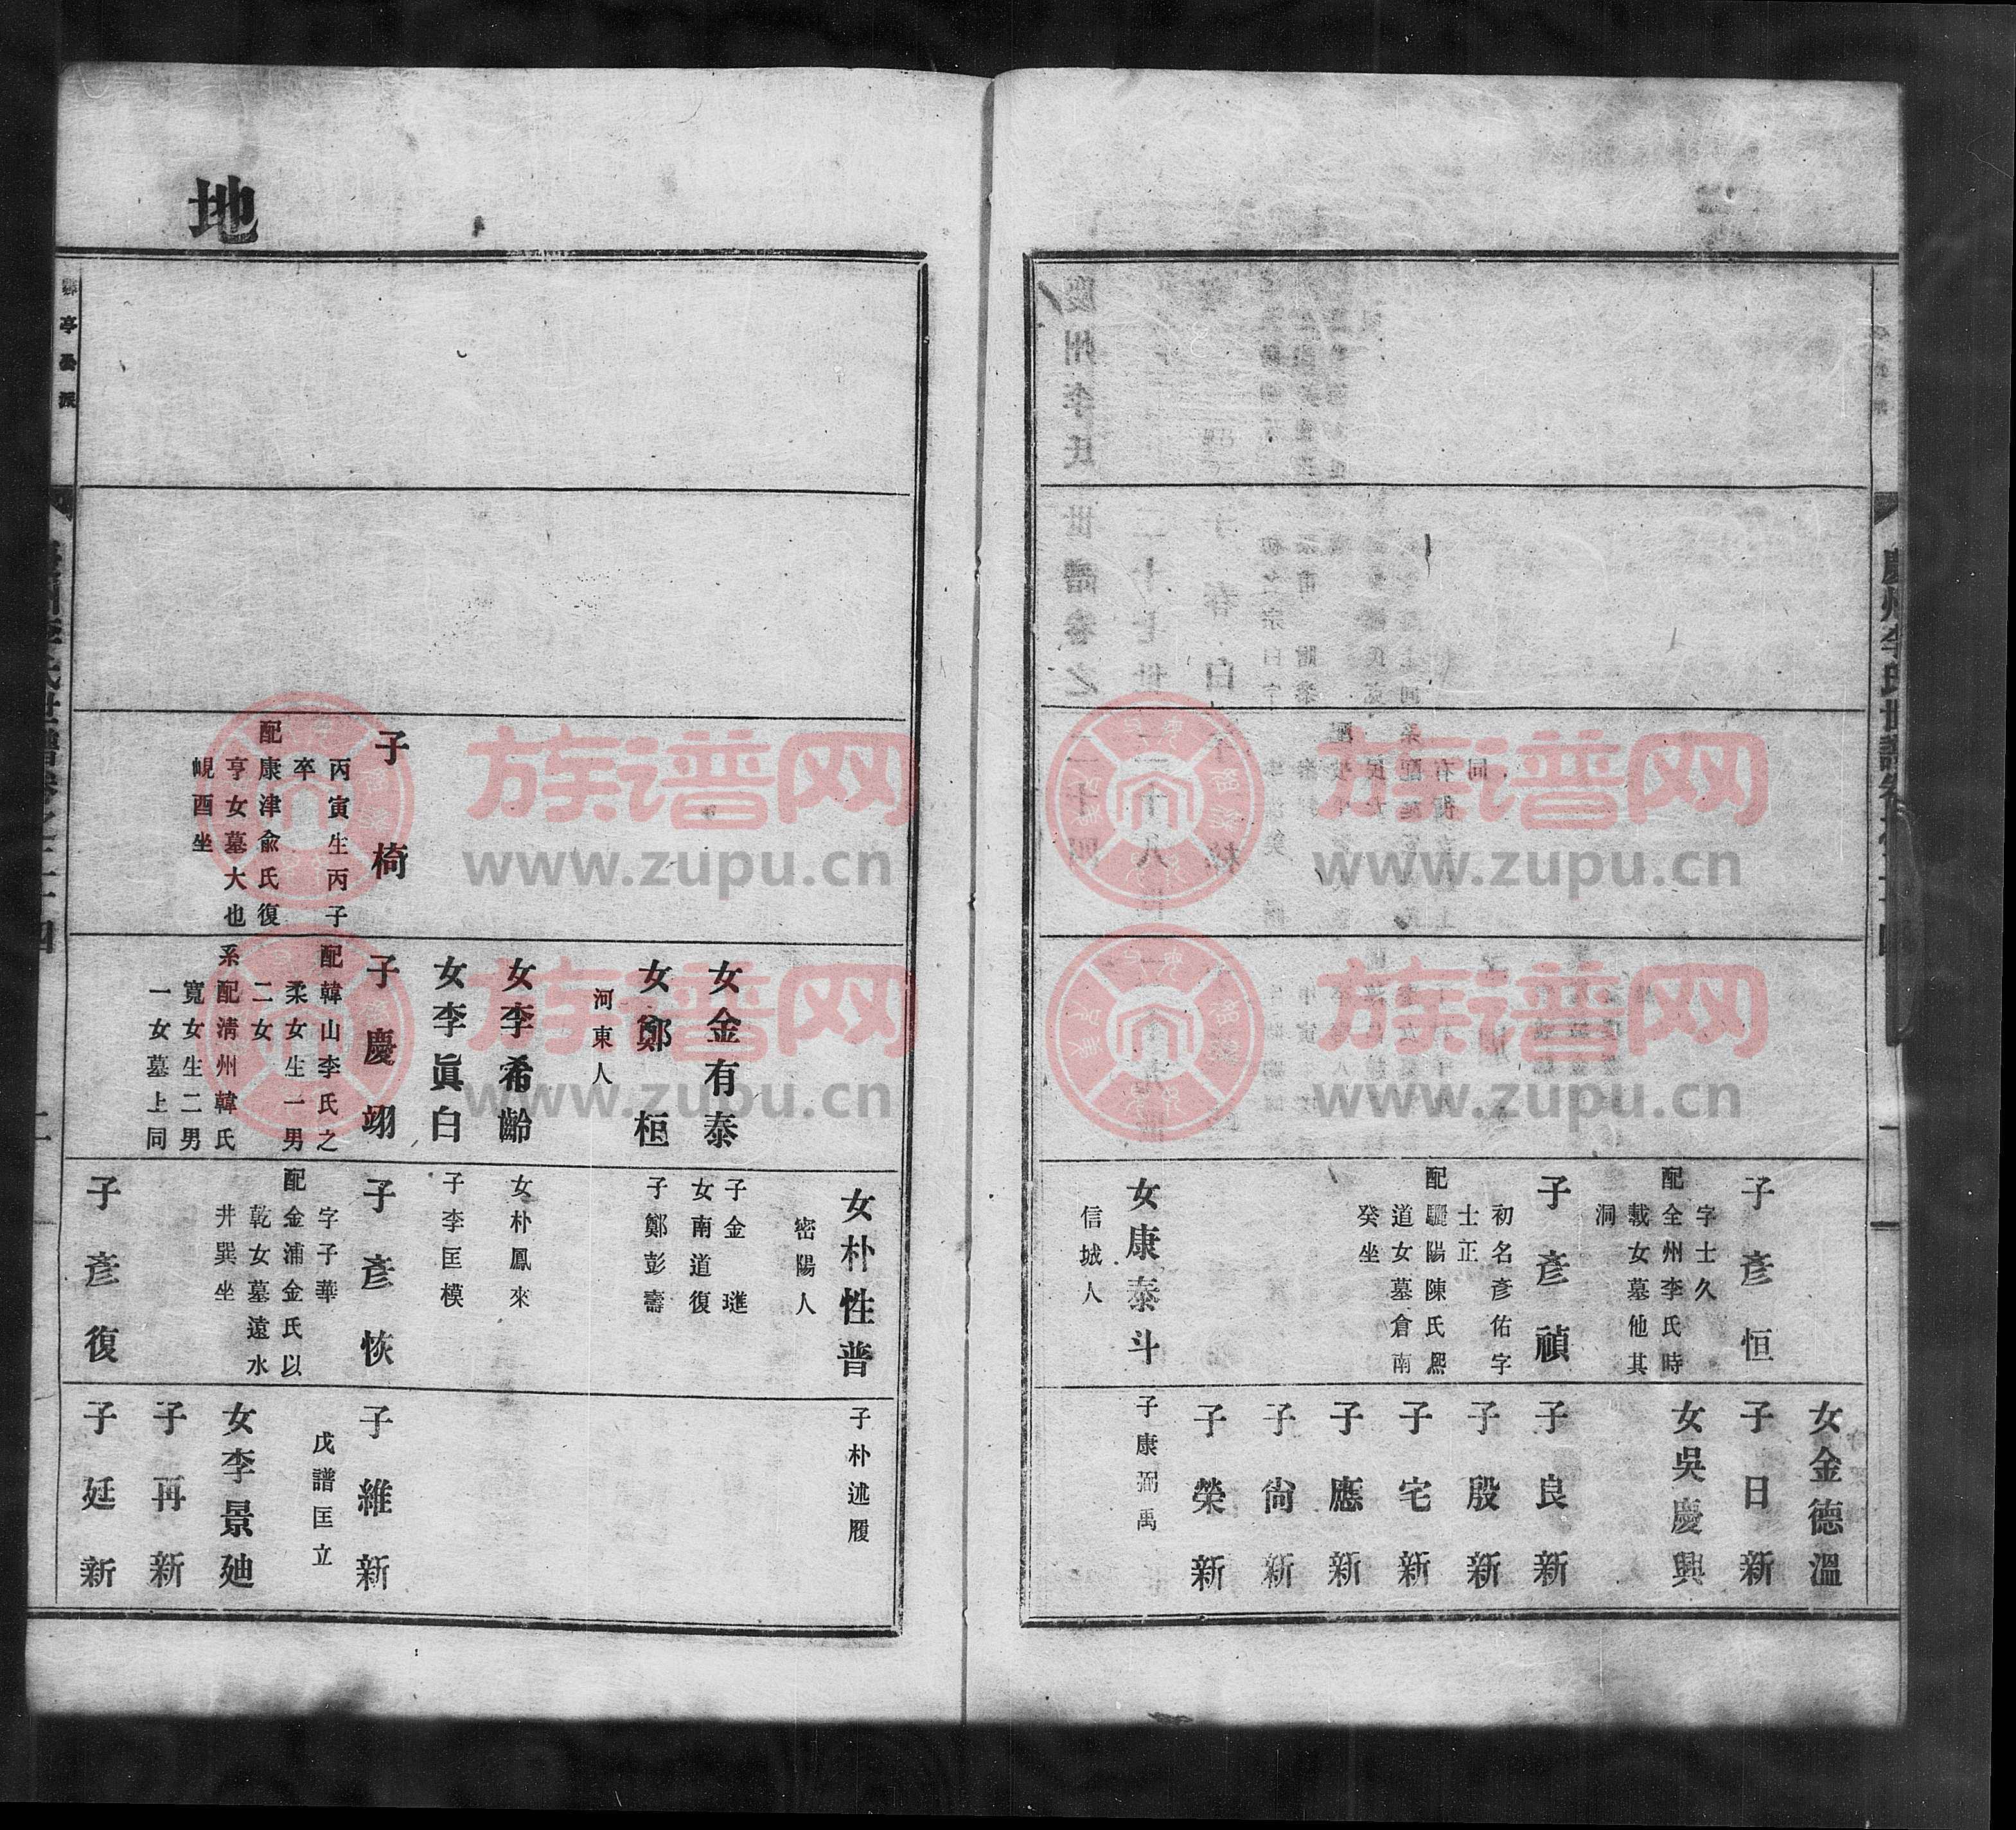 慶州李氏世譜卷之二十四
一
子彥恒
字士久
配全州李氏時
載女墓他其
洞
子彥禎
初名彥佑字
士正
配驪陽陳氏熙
道女墓倉南
癸坐
女康泰斗
信城人
女金德溫
子日新
女吳慶興
子良新
子殷新
子宅新
子應新
子尙新
子榮新
子康弼禹
地
子椅
丙寅生丙子
卒
配康津兪氏復
亨女墓大也
峴酉坐
女金有泰
女鄭桓
河東人
女李希齡
女李眞白
子慶翊
配韓山李氏之
柔女生一男
二女
系配淸州韓氏
寬女生二男
一女墓上同
女朴性普
密陽人
子金璡
女南道復
子鄭彭壽
女朴鳳來
子李匡模
子彥恢
字子華
配金浦金氏以
乾女墓遠水
井巽坐
子彥復
子朴述履
子維新
戊譜匡立
女李景廸
子再新
子廷新
慶州李氏世譜卷之二十四
二
族谱网
www.zupu.cn
族谱网
www.zupu.cn
族谱网
www.zupu.cn
族谱网
www.zupu.cn